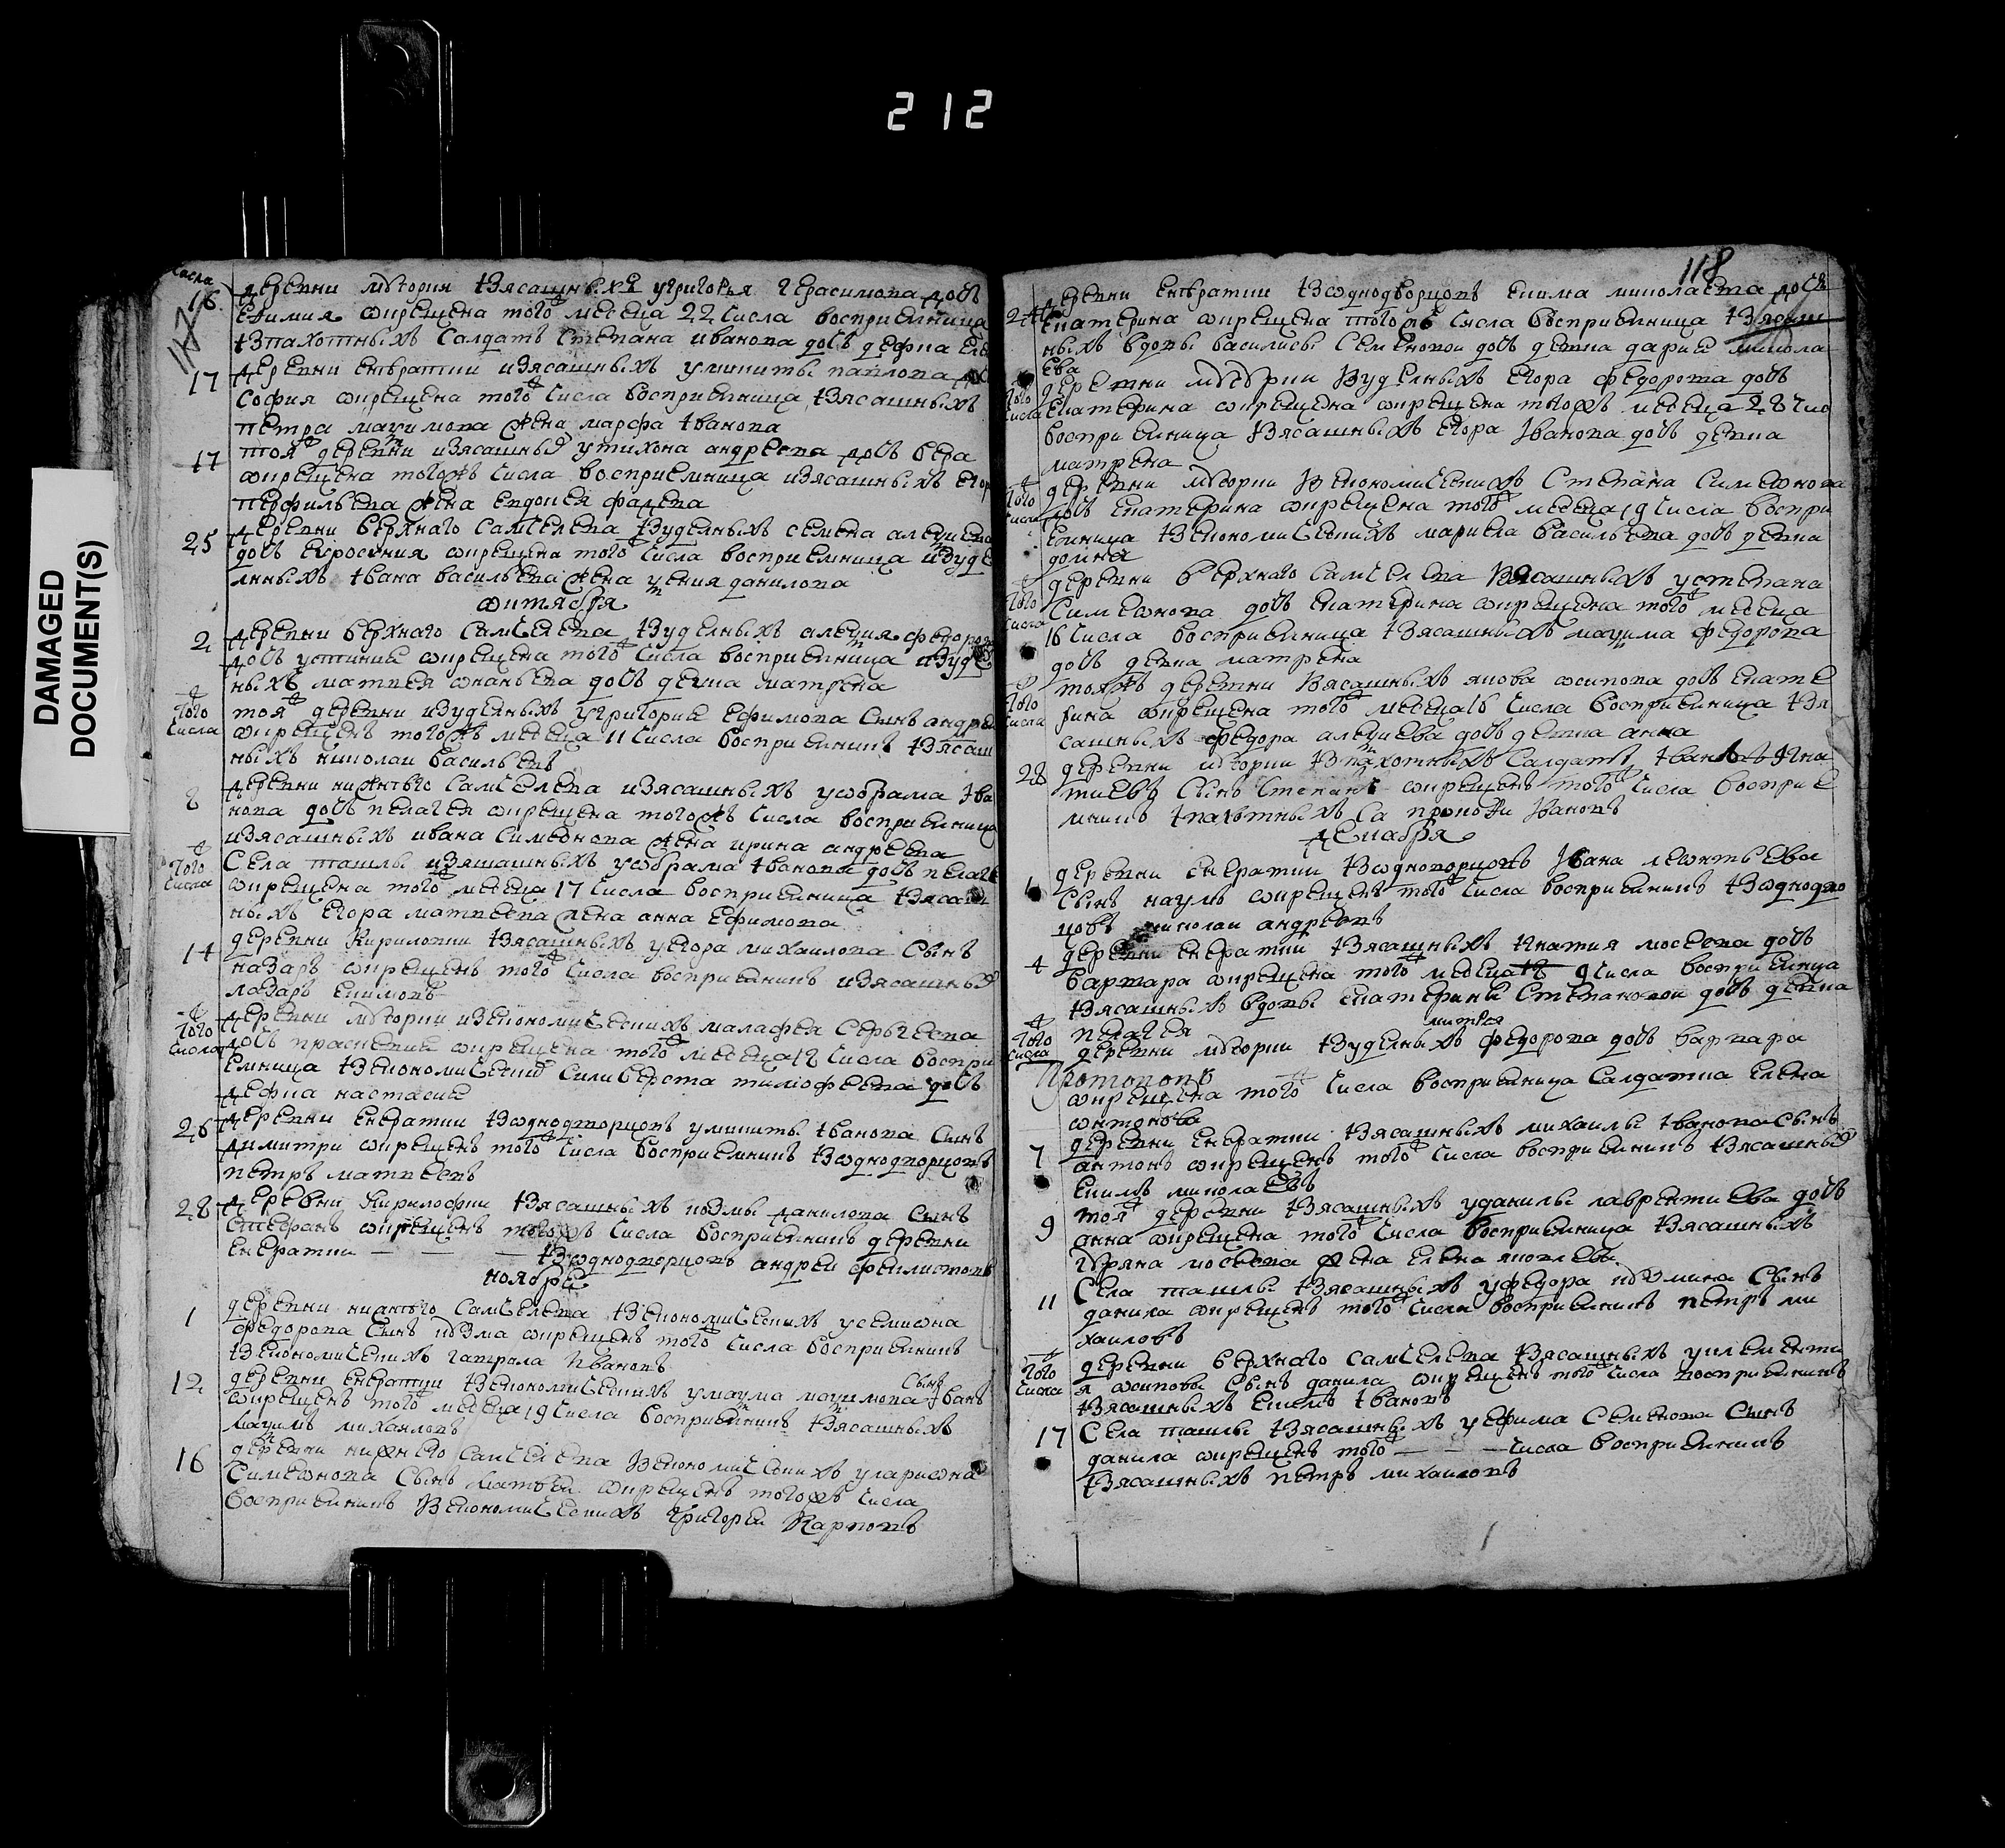 212
DAMAGED
DOCUMENT(S)
числа
117
16 деревни мѣтория Iзясашныхъ Григорья Герасимова дочь
Евфимия окрещена того ж месеца 22 числа восприемница
Iзпахотныхъ салдатъ Степана Иванова дочь девка
17 деревни енкратии изясашныхъ у никиты павлова
София окрещена того ж числа восприемница Iзясашныхъ
петра максимова жена марфа Iванова
17 тоя ж деревни изясашных у тихона андреева дочь вера
окрещена того ж числа восприемница изясашныхъ
перфильева жена евдокея фадеева
25 деревни верхнаго Самчелева Iзудельныхъ семена
дочь евросения окрещена того ж числа восприемница
льныхъ Iвана васильева жена ксения данилова
октября
2 деревни верхнаго Самчелева Iзудельныхъ алексия федорова
дочь устиния окрещена того ж числа восприемница
ныхъ матвея ананьева дочь девка матрена
того ж числа тоя ж деревни изудельныхъ у григория ефимова сынъ андрей
окрещенъ того ж месеца 11 числа восприемникъ Iзясаш
ныхъ николаи васильевъ
8 деревни нижняго Самчелева изясашныхъ у абрама Iва
нова дочь пелагея окрещена того ж числа восприемница
изясашныхъ ивана симеонова жена ирина андреева
того ж числа Села ташлы изяшашныхъ у абрама Iванова дочь пелагея
окрещена того ж месеца 17 числа восприемница Iзясаш
ныхъ егора матвеева жена анна ефимова
14 деревни Кириловки Iзясашныхъ у егора михаилова сынъ
назаръ окрещенъ того ж числа восприемникъ изясашных
лазарь екимовъ
того ж числа деревни мѣтории изекономическихъ малафея сергеева
дочь прасковия окрещена того ж месеца 18 числа воспри
емница Iзекономическихъ силиверста тимофеева дочь
девка настасия
26 деревни енкратии Iзоднодворцовъ у никиты Iванова сынъ
димитри окрещенъ того ж числа восприемникъ Iзоднодворцовъ
петръ матвеевъ
28 деревни Кирилофки Iзясашныхъ козмы данилова сынъ
стефанъ окрещенъ того ж числа восприемникъ деревни
енкратии — — — Iзоднодворцовъ андреи филиповъ
ноября
1 деревни нижняго Самчелева Iзекономическихъ у семиона
федорова сынъ козма окрещенъ того ж числа восприемникъ
Iзекономическихъ гаврила Ивановъ
12 деревни енкратии Iзекономическихъ у наума максимова сынъ Iванъ
окрещенъ того ж месеца 19 числа восприемникъ Iзясашныхъ
максимъ михаиловъ
16 деревни нижнего Самчелева Iзекономическихъ у лариона
Симеонова сынъ матвеи окрещенъ того ж числа
восприемникъ Iзекономическихъ Григореи Карповъ
118
24 деревни енкратии Iзоднодворцовъ екима миколаева дочь
екатерина окрещена того ж числа восприемница Iзясаш
ныхъ вдовы василисы семеновой дочь девка дария микола
ева
того ж числа деревни мѣтории Iзудельныхъ егора федорова дочь
екатерина окрещена окрещена того ж месеца 28 чис
восприемница Iзясашныхъ егора Iванова дочь девка
матрена
того ж числа деревни мѣтории Iзекономическихъ Степана Симеонова
дочь екатерина окрещена того ж месеца 19 числа воспри
емница Iзекономическихъ васильева дочь девка
домна
того ж числа деревни верхнаго Самчелева Iзясашныхъ у степана
Симеонова дочь екатерина окрещена того ж месеца
16 числа восприемница Iзясашныхъ максима федорова
дочь девка матрена
того ж числа тоя ж деревни Iзясашныхъ якова осипова дочь екате
рина окрещена того ж месеца 16 числа восприемница Iзя
сашныхъ федора алексиева дочь девка анна
28 деревни мѣтории Iзпахотныхъ Салдатъ Iвана Игна
тиевъ сынъ Степанъ окрещенъ того ж числа восприе
мникъ Iпахотныхъ Са прокофи Ивановъ
декабря
1 деревни енкратии Iзоднодворцовъ Iвана леонтьева
сынъ наумъ окрещенъ того ж числа восприемникъ Iзоднодво
цовъ николаи андреевъ
4 деревни енкратии Iзясашныхъ Iгнатия мосеева дочь
варвара окрещена того ж месеца 9 числа восприемница
Iзясашныхъ вдовы екатерины Степановой дочь девка
пелагея
того ж числа деревни мѣтории Iзудельныхъ федорова дочь варвара
Протопопъ
окрещена того ж числа восприемница Салдатка елена
онтонова
7 деревни енкратии Iзясашныхъ михаилы Iванова сынъ
антонъ окрещенъ того ж числа восприемникъ Iзясашных
екимъ миколаевъ
9 тоя ж деревни Iзясашныхъ у данилы лаврентиева дочь
анна окрещена того ж числа восприемница Iзясашныхъ
мосеева жена елена яковлева
11 Села ташлы Iзясашныхъ у федора козмина сынъ
данила окрещенъ того ж числа восприемникъ петръ ми
хаиловъ
того ж числа деревни верхнаго Самчелева Iзясашныхъ у клементи
я осипова сынъ данила окрещенъ того ж числа восприемникъ
Iзясашныхъ екимъ Iвановъ
17 Села ташлы Iзясашныхъ у ефима Семенова сынъ
данила окрещенъ того ж — — — числа восприемникъ
Iзясашныхъ петръ михаиловъ